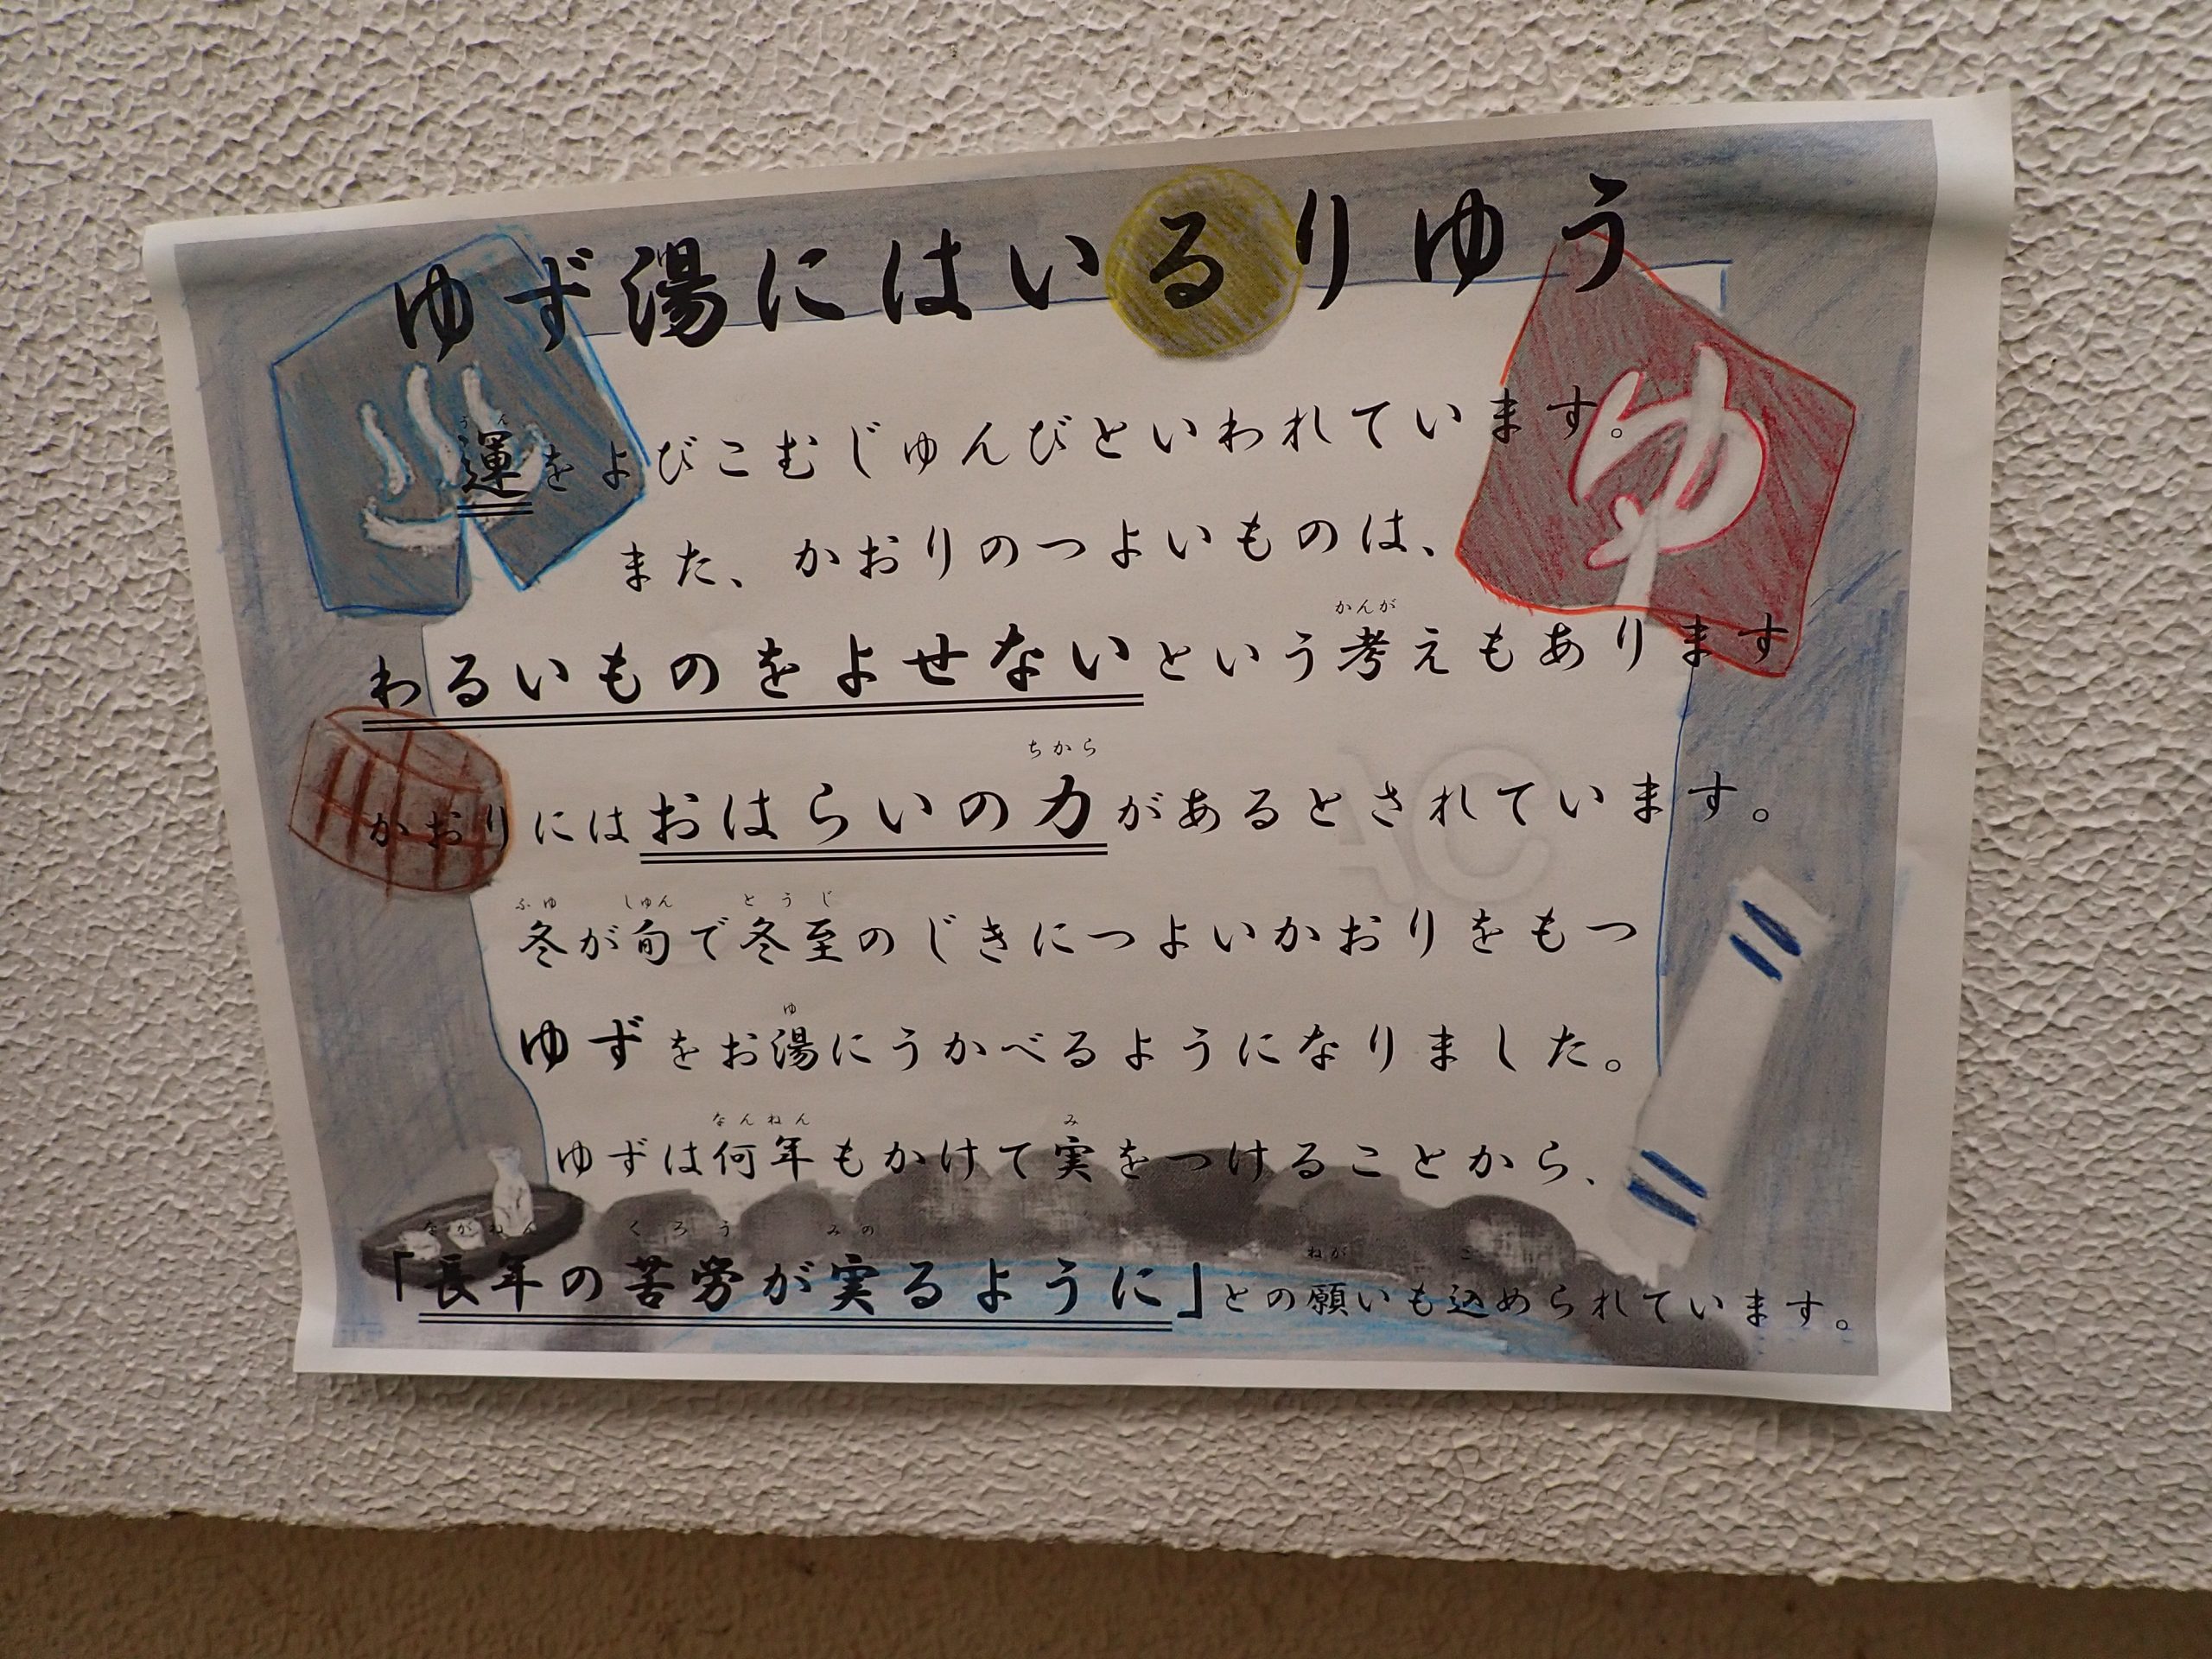 ゆず湯にはいるりゆう
ゆ
うん
運をよびこむじゅんびといわれています。
また、かおりのつよいものは、
かんが
わるいものをよせないという考えもあります
ちから
かおりにはおはらいの力があるとされています。
ふゆ しゅん とうじ
冬が旬で冬至のじきにつよいかおりをもつ
ゆ
ゆずをお湯にうかべるようになりました。
なんねん み
ゆずは何年もかけて実をつけることから、
ながねん くろう みの ねが こ
「長年の苦労が実るように」との願いも込められています。